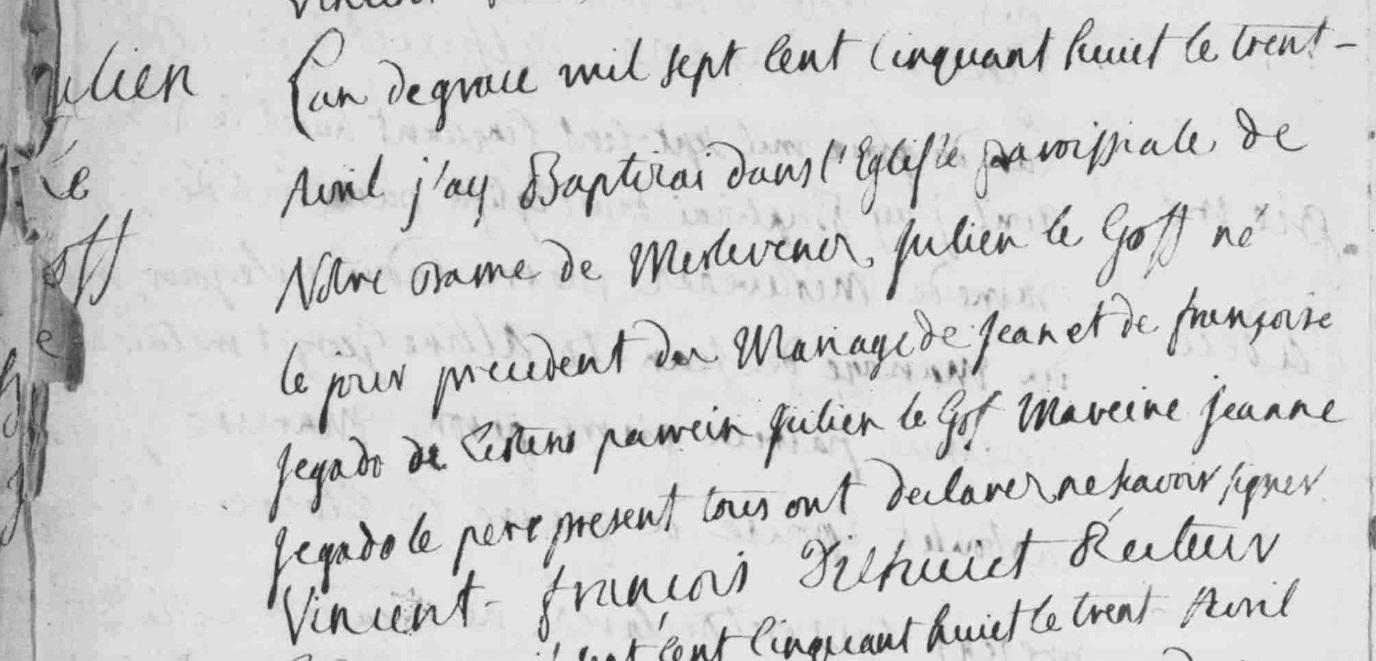 Vincent
Julien
Lan de grace mil sept Cent Cinquant huict le trent-
le
Avril j'ay Baptizai dans l'Eglise paroissiale de
Goff
Notre Dame de Merlevenez Julien le Goff né
le jour precedent du Mariage de Jean et de françoise
Jegado de parrein Julien le Gof Mareine Jeanne
Jegado le pere present tous ont declarer ne savoir signer
Vincent françois Dixhuict Recteur
sept Cent Cinquant huict le trent Avril